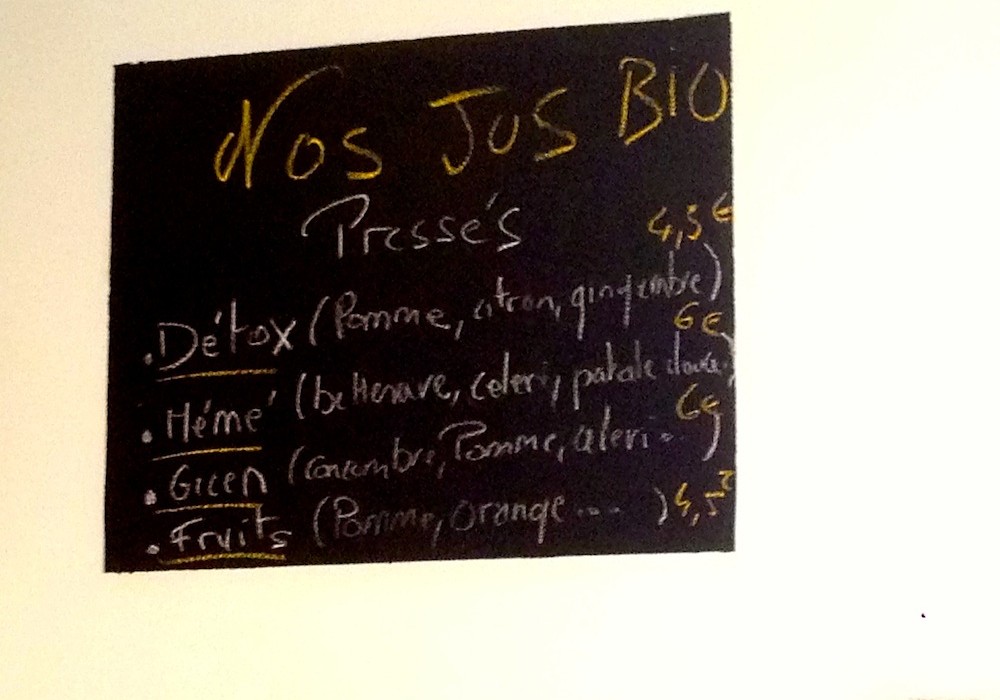 Nos Jus BIO
Pressés
4,5€
.Détox (Pomme, citron, gingembre)
6€
.Mémé (betterave, celeri, patate douce)
6€
.Green (concombre, Pomme, celeri..)
.Fruits (Pomme, orange ... ) 4,5€